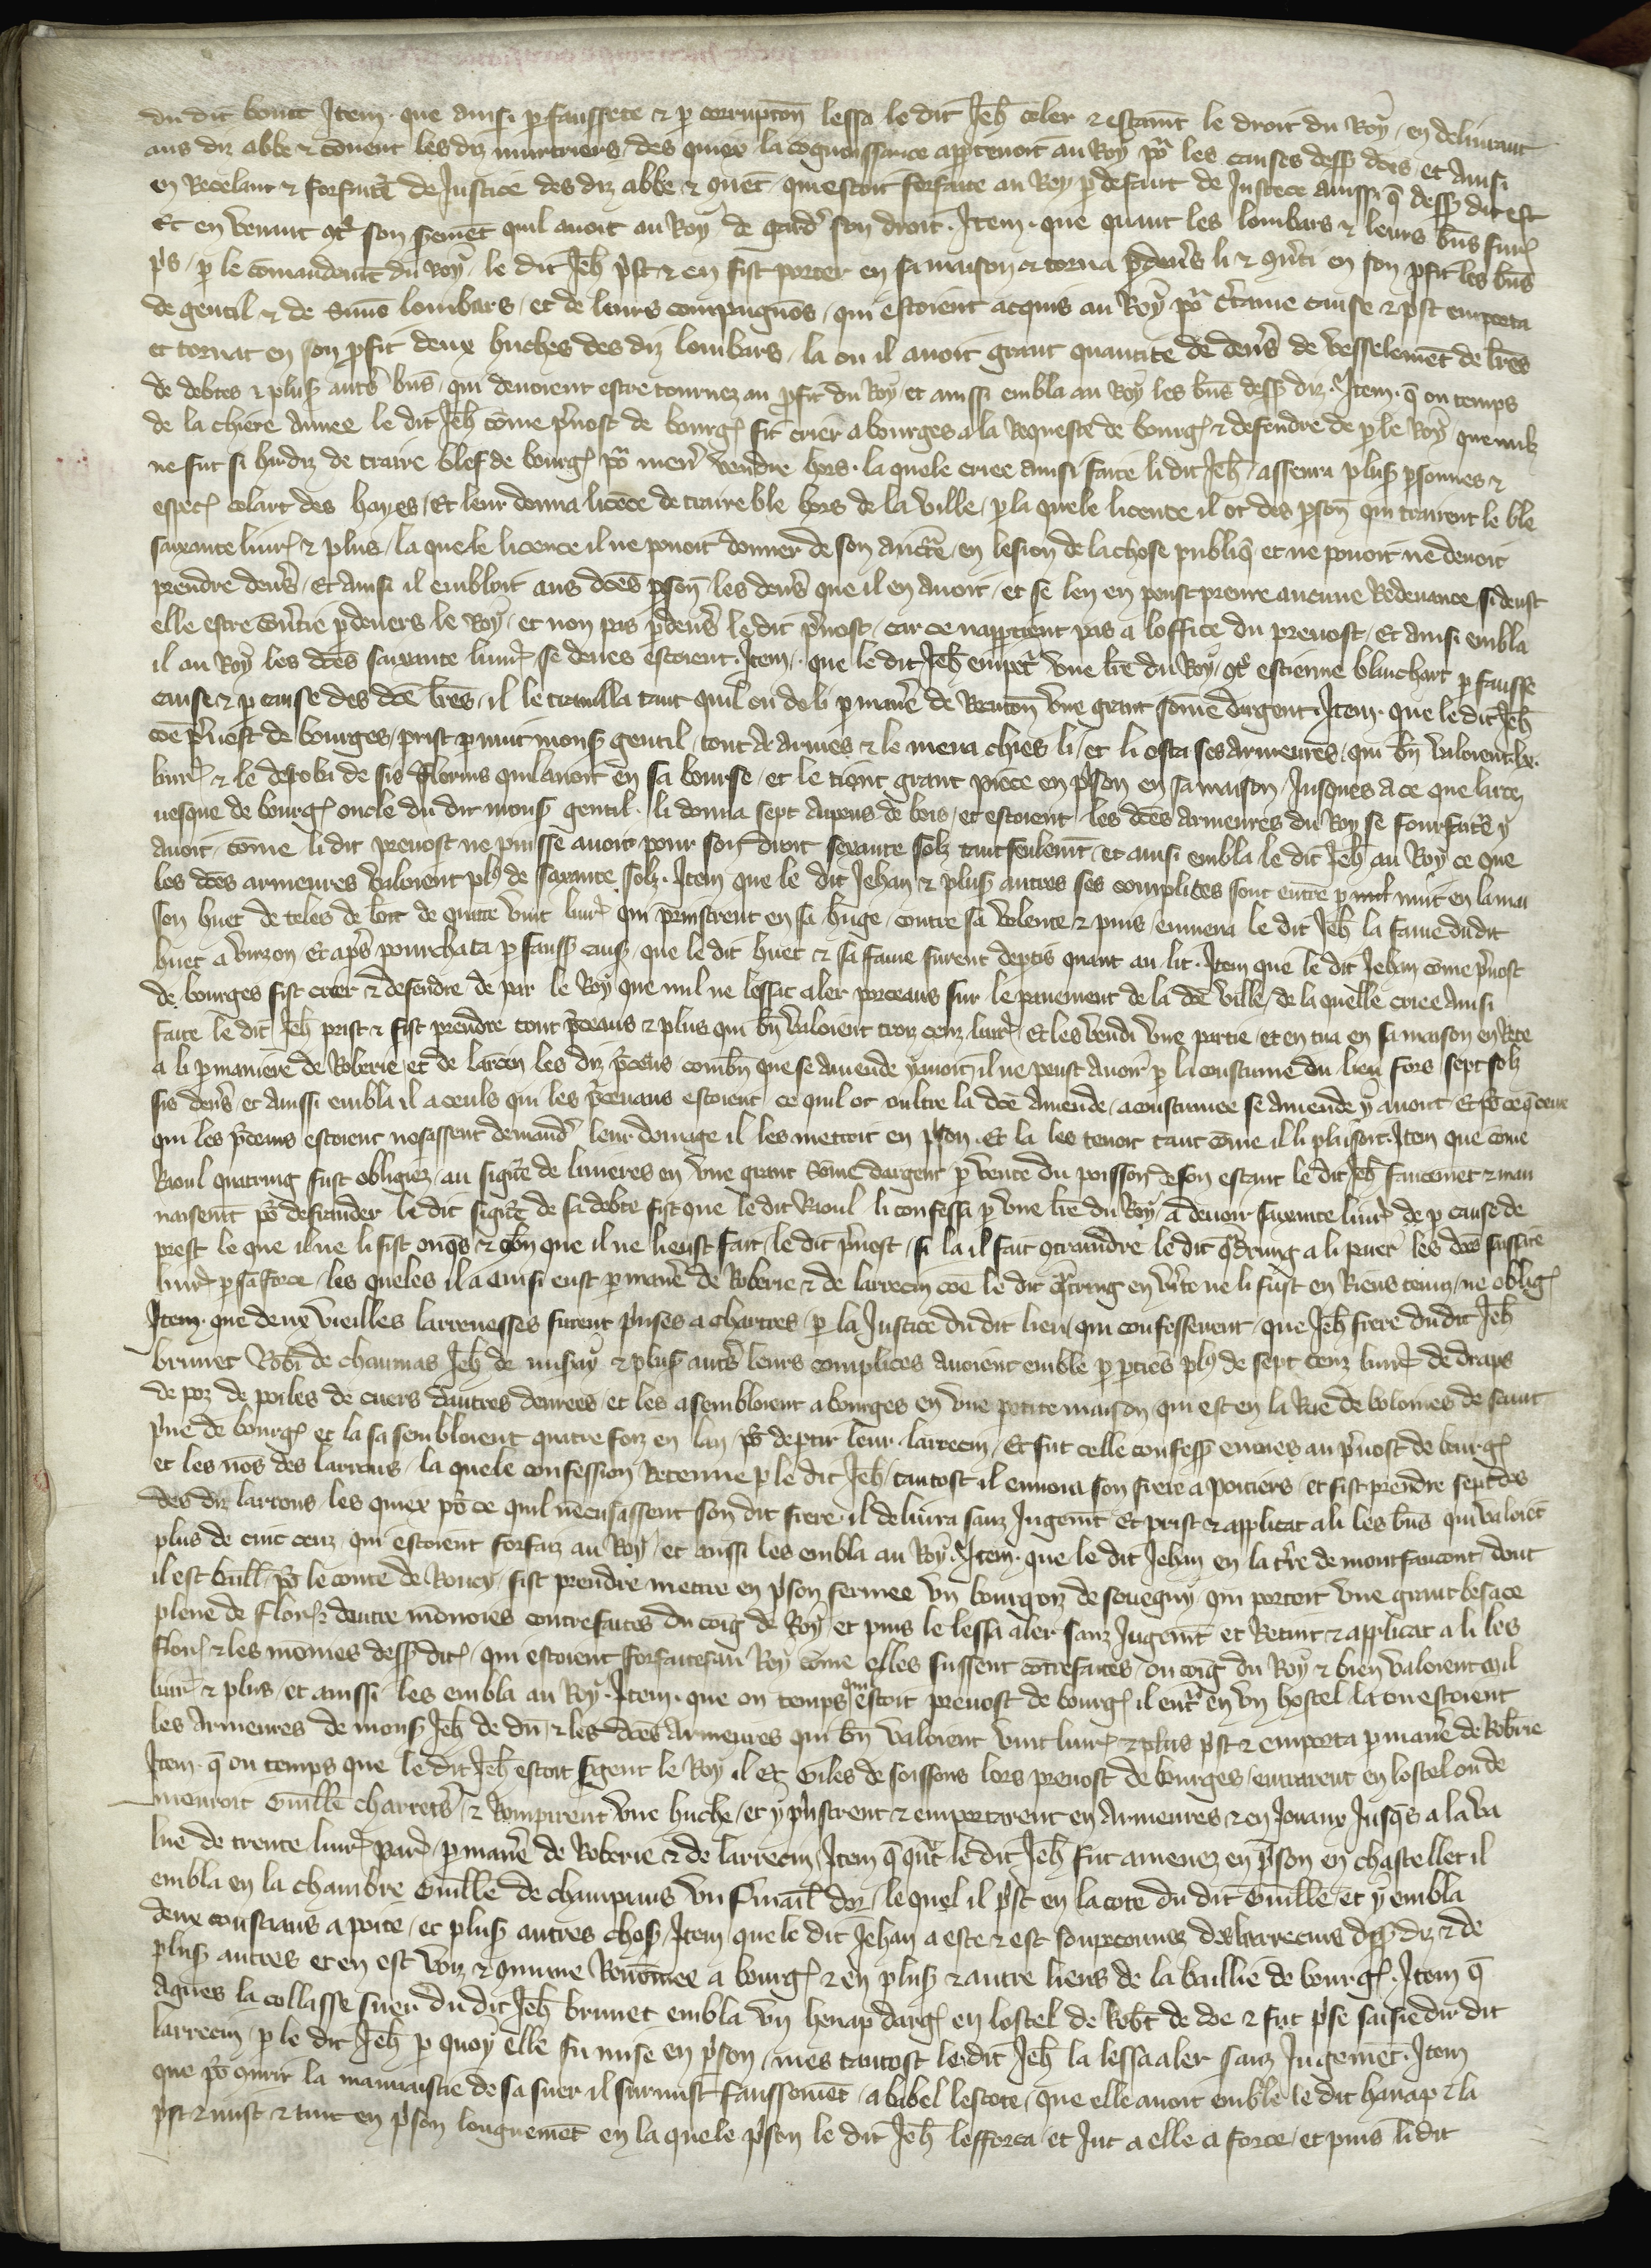 du dit bouut Item que ainsi p faussete & p corrupton lessa le dit Jeh celer & estaint le droit du Roy en delivrant
aus diz abbe & couent les diz murtriers des quiex la cognoissance apptenoit au Roy po les causes dess dces et ainsi
en Recelant & forfaict de Justice des diz abbe & quet qui estoit forfaite au Roy p defaut de Justece aussi q dess dit est
Et en venant cot son serment quil auoit au Roy de gard son droit. Item. que quant les lombars & leurs biens fur
pis p le comandemt du Roy le dit Jeh pst & en fist porter en sa maison & torna pdevs li & conti en son pfit les bns
de gentil & de Simo lombars et de leurs compaignos qui estoient acquis au Roy po ctaine cause & pst emporta
et tornat en son pfit deux huches des diz lombars la ou il auoit grant quantite de dens de vesselemet de lres
de debtes & plus auts bns qui deuoient estre tournez au pfit du Roy et aussi embla au Roy les bns dess diz. Item. q ou temps
de la chiere annee le dit Jeh come puost de bourg fit crier a bourges a la Requeste de bourg & defendre de p le Roy que nulz
ne fut si hardiz de traire blef de bourg po men vendre hors. la quele criee ainsi faite li dit Jeh asseura plus psonnes &
espec colart des hayes Et leur donna licece de traire ble hors de la ville p la quele licence il ot des pson qui trairent le ble
saixante liur & plus la quele licence il ne pouoit donner de son aucte en lesion de la chose publiq et ne pouoit ne deuoit
prendre dens Et ainsi il embloit aus dces pson les dens que il en auoit et se len en peust prenre aucune Redeuance si deust
elle estre contie pdevers le Roy et non pas pdevs le dit puost car ce nappartient pas a loffice du preuost Et ainsi embla
il au Roy les dces saixante liur se deues estoient. Item. que le dit Jeh empet vne lre du Roy cot estienne blanchart p fausse
cause & p cause des dce lres il le trauilla tant quil ou de li p mane de Renton vne grant some dargent. Item. que le dit Jeh
coe puost de bourges prist p nuit mons gentil tout de armes & le mena chies li et li osta ses armeures qui bn valoient lx.
liur & le desroba de sis florins quil auoit en sa bourse et le tient grant piece en pson en sa maison Jusques a ce que larce
uesque de bourg oncle du dit mons gentil li donna sept arpens de bois et estoient les dces armeures du Roy se fourfaite y
auoit come li dit preuost ne puisse auoir pour son droit sexante solz tant seulemt et ainsi embla le dit Jeh au Roy ce que
les dces armeures valoient pl de saxante solz. Item que le dit Jehan & plus autres ses complices sont entre p nuit en la mai
son huet de teles de loit de quatre vint liur qui prinstrent en sa huge contre sa volente & puis enmena le dit Jeh la fame du dit
huet a virzon Et aps pourchata p fauss caus que le dit huet & sa fame furent deptis quant au lit. Item que le dit Jehan come puost
de bourges fist crier & defendre de par le Roy que nul ne lessat aler porceaus sur le pauement de la dce ville de la quelle criee ainsi
faite le dit Jeh prist & fist prendre tout pceaus & plus qui bn valoient troiz cenz liur Et les vendi vne partie et en tua en sa maison en Rete
a li p maniere de Roberie et de larcin les diz pceus combn que se amende y auoit il ne peust auoir p la coustume du lieu fors sept solz
sis dens et aussi embla il a ceuls qui les pceaus estoient ce quil ot oultre la dce amende acoustumee se amende y auoit Et po ce q ceux
qui les pceaus estoient nosassent demand leur domage il les mettoit en pson. Et la les tenoit tant come il li plaisoit. Item que come
Raoul quatring fust obligiez au sigre de linieres en vne grant some dargent p vente du poisson de son estanc le dit Jeh faucemet & mau
naisemt po defrauder le dit sigre de sa debte fist que le dit Raoul li confessa p vne lre du Roy a deuoir saixante liur de p cause de
prest le que il ne li fist onqs & com que il ne lieust fait le dit puost si la il fait contraindre le dit qdring a li paier les dces saixate
liur p sa force les queles il a ainsi eust p mane de Roberie & de larrecin coe le dit qtring en vite ne li fust en Riens tenuz ne oblig
Item. que deux vieilles larrenesses furent prises a chartres p la Justice du dit lieu qui confesserent que Jeh frere du dit Jeh
brunet Robi de chaumas Jeh de misay & plus auts leurs complices auoient emble p pties pl de sept cenz liur de draps
de poz de poiles de cuers dautres denrees et les asembloient a bourges en vne petite maison qui est en la Rue de bolomies de saint
pue de bourg et la sasembloient quatre foiz en lan po deptir leur larrecin Et fut celle confess enuoiee au puost de bourg
et les nos des larrons la quele confession Retenue p le dit Jeh tantost il enuoia son frere a poitiers et fist prendre sept des
des diz larrons les quiex po ce quil necusassent son dit frere il deliura sanz Jugemt Et prist & applicat a li les bns qui valoiet
plus de cinc cenz qui estoient forfaiz au Roy et aussi les embla au Roy. Item. que le dit Jehan en la tre de montfaucont dont
il est baill po le conte de Roucy fist prendre mettre en pson fermee vn bourgoz de souegny qui portoit vne grant besace
plene de flor & dautre monoies contrefaites du coig de Roy et puis le lessa aler sanz Jugemt et Retint & applicat a li les
flor & les monnies dess dit qui estoient forfaites au Roy come elles fussent cotrefaites ou coig du Roy & bien valoient mil
liur & plus et aussi les embla au Roy. Item. que ou temps quil estoit preuost de bourg il entra en vn hostel la ou estoient
les armeures de mons Jeh de du & les dces armeures qui bn valoient vint liur & plus pst & emporta p mane de Robrie
Item. q ou temps que le dit Jeh estoit sgent le Roy il et Giles de soissons lors preuost de bourges entrarent en lostel ou de
mouroit Guille charrets & Rompirent vne huche et y pristrent & emportarent en armeures & en Jouaux Jusqs a la va
lue de trente liur par p mane de Roberie & de larrecin Item q qut le dit Jeh fut amenez en pson en chastellet il
embla en la chambre Guille de champiaus vn fmail dor le quel il pst en la cote du dit Guille et y embla
deux coustiaus a pointe et plus autres chos Item que le dit Jehan a este & est soupeconnez des larrecins dess diz & de
plus autres et en est voiz & cmmune Renomee a bourg & en plus & autre lieus de la baillie de bourg. Item q
Agnes la collasse sueur du dit Jeh brunet embla vn henap darg en lostel de Robt de doe & fut pse saisie du dit
larrecin p le dit Jeh p quoy elle fu mise en pson mes tantost le dit Jeh la lessa aler sanz Jugemet. Item
que po courir la mauuaistie de sa suer il surmist faussemet a babel lescote que elle auoit emble le dit hanap & la
pst & mist & tint en pson longuemet en la quele pson le dit Jeh lefforca et Jut a elle a force et puis li dit